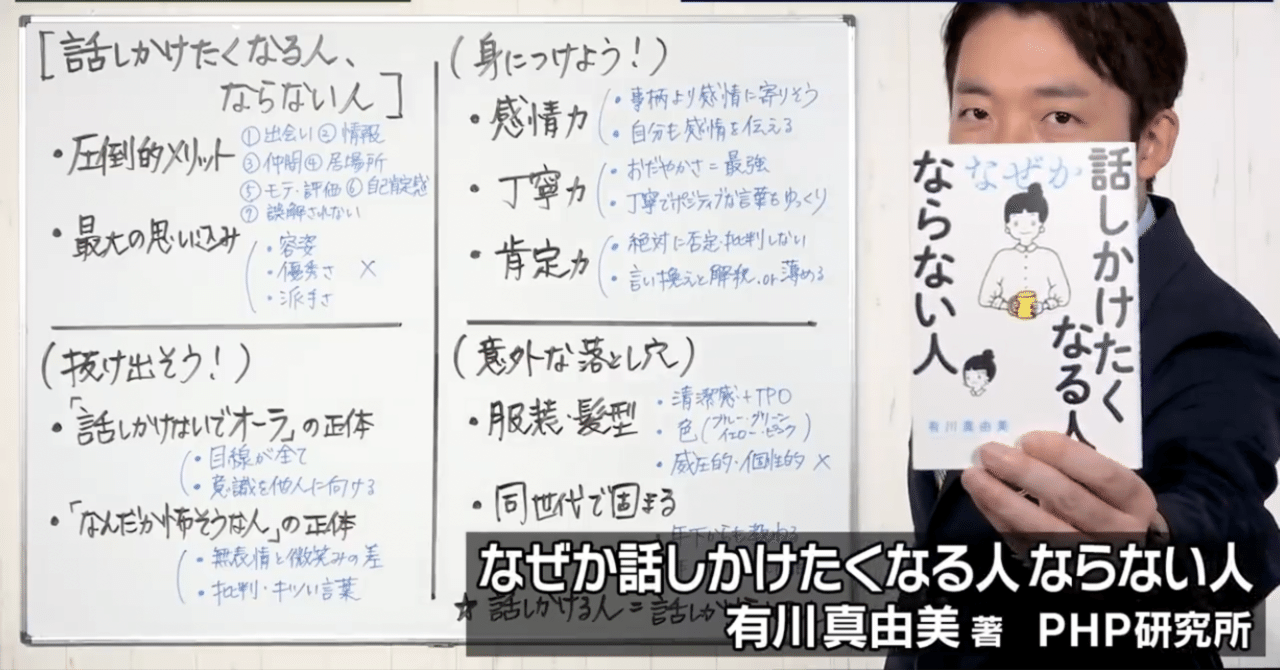 [話しかけたくなる人、
ならない人]
・圧倒的メリット
①出会い ②情報
③仲間 ④居場所
⑤モテ・評価 ⑥自己肯定感
⑦誤解されない
・最大の思い込み
・容姿
・優秀さ ×
・派手さ
(抜け出そう!)
・「話しかけないでオーラ」の正体
・目線が全て
・意識を他人に向ける
・「なんだか怖そうな人」の正体
・無表情と微笑みの差
・批判・キツい言葉
(身につけよう!)
・感情力
・事柄より感情に寄りそう
・自分も感情を伝える
・丁寧力
・おだやかさ=最強
・丁寧でポジティブな言葉をゆっくり
・肯定力
・絶対に否定・批判しない
・言い換えと解釈、or 薄める
(意外な落とし穴)
・服装・髪型
・清潔感+TPO
・色(ブルー・グリーン
イエロー・ピンク)
・威圧的・個性的 ×
・同世代で固まる
☆ 話しかける人=話しかけ
なぜか
話しかけたく
なる人
ならない人
有川真由美
なぜか話しかけたくなる人 ならない人
有川真由美 著 PHP研究所